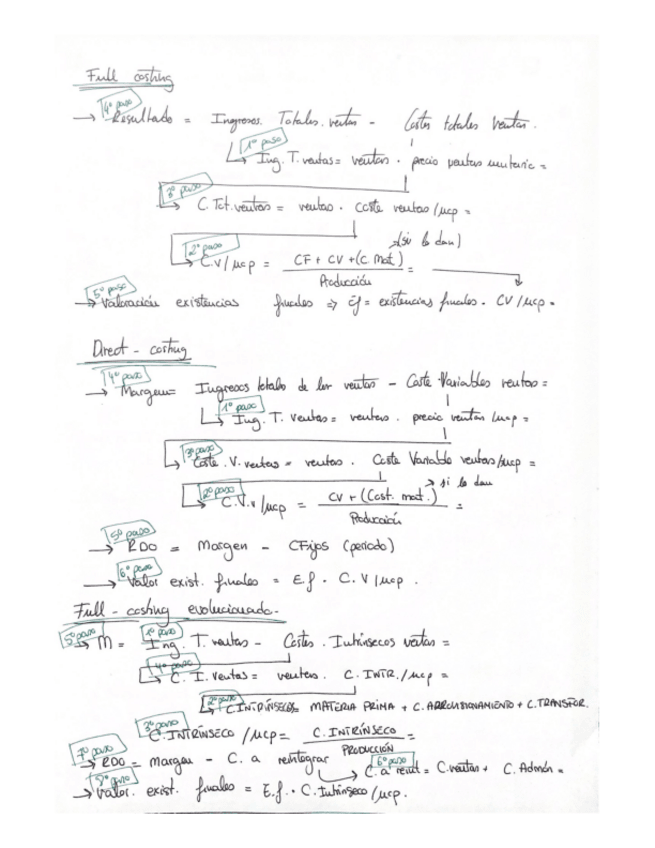 Full costing
4º paso
→ Resultado = Ingresos. Totales. ventas - Costes totales ventas.
1º paso
Ing. T. ventas = ventas · precio ventas unitario =
3º paso
C. Tot. ventas = ventas · coste ventas/ucp =
(si lo dan)
2º paso
C.V/ucp = CF + CV + (C. Mat.) =
Producción
5º paso
→ Valoración existencias finales ⇒ Ef = existencias finales · CV/ucp =
Direct - costing
4º paso
→ Margen = Ingresos totales de las ventas - Coste Variables ventas =
1º paso
Ing. T. ventas = ventas · precio ventas/ucp =
3º paso
Coste. V. ventas = ventas · Coste Variable ventas/ucp =
→ si lo dan
2º paso
C.V.v/ucp = CV + (Cost. mat.) =
Producción
5º paso
→ RDO = Margen - CFijos (periodo)
6º paso
→ Valor exist. finales = E.f. · C.V/ucp.
Full - costing evolucionado.
5º paso 1º paso
→ M = Ing. T. ventas - Costes. Intrínsecos ventas =
4º paso
C. I. Ventas = ventas. C. INTR./ucp =
2º paso
C. INTRÍNSECOS = MATERIA PRIMA + C. APROVISIONAMIENTO + C. TRANSFOR.
3º paso
C. INTRÍNSECO/ucp = C. INTRÍNSECO =
PRODUCCIÓN
7º paso 6º paso
→ RDO = margen - C. a reintegrar → C. a reint = C. ventas + C. Admón =
8º paso
→ Valor. exist. finales = E.f. · C. Intrínseco/ucp.